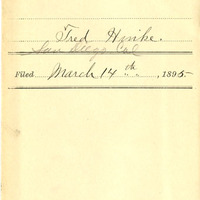 Fred Hinike.
San Diego, Cal
Filed March 14th, 1895-